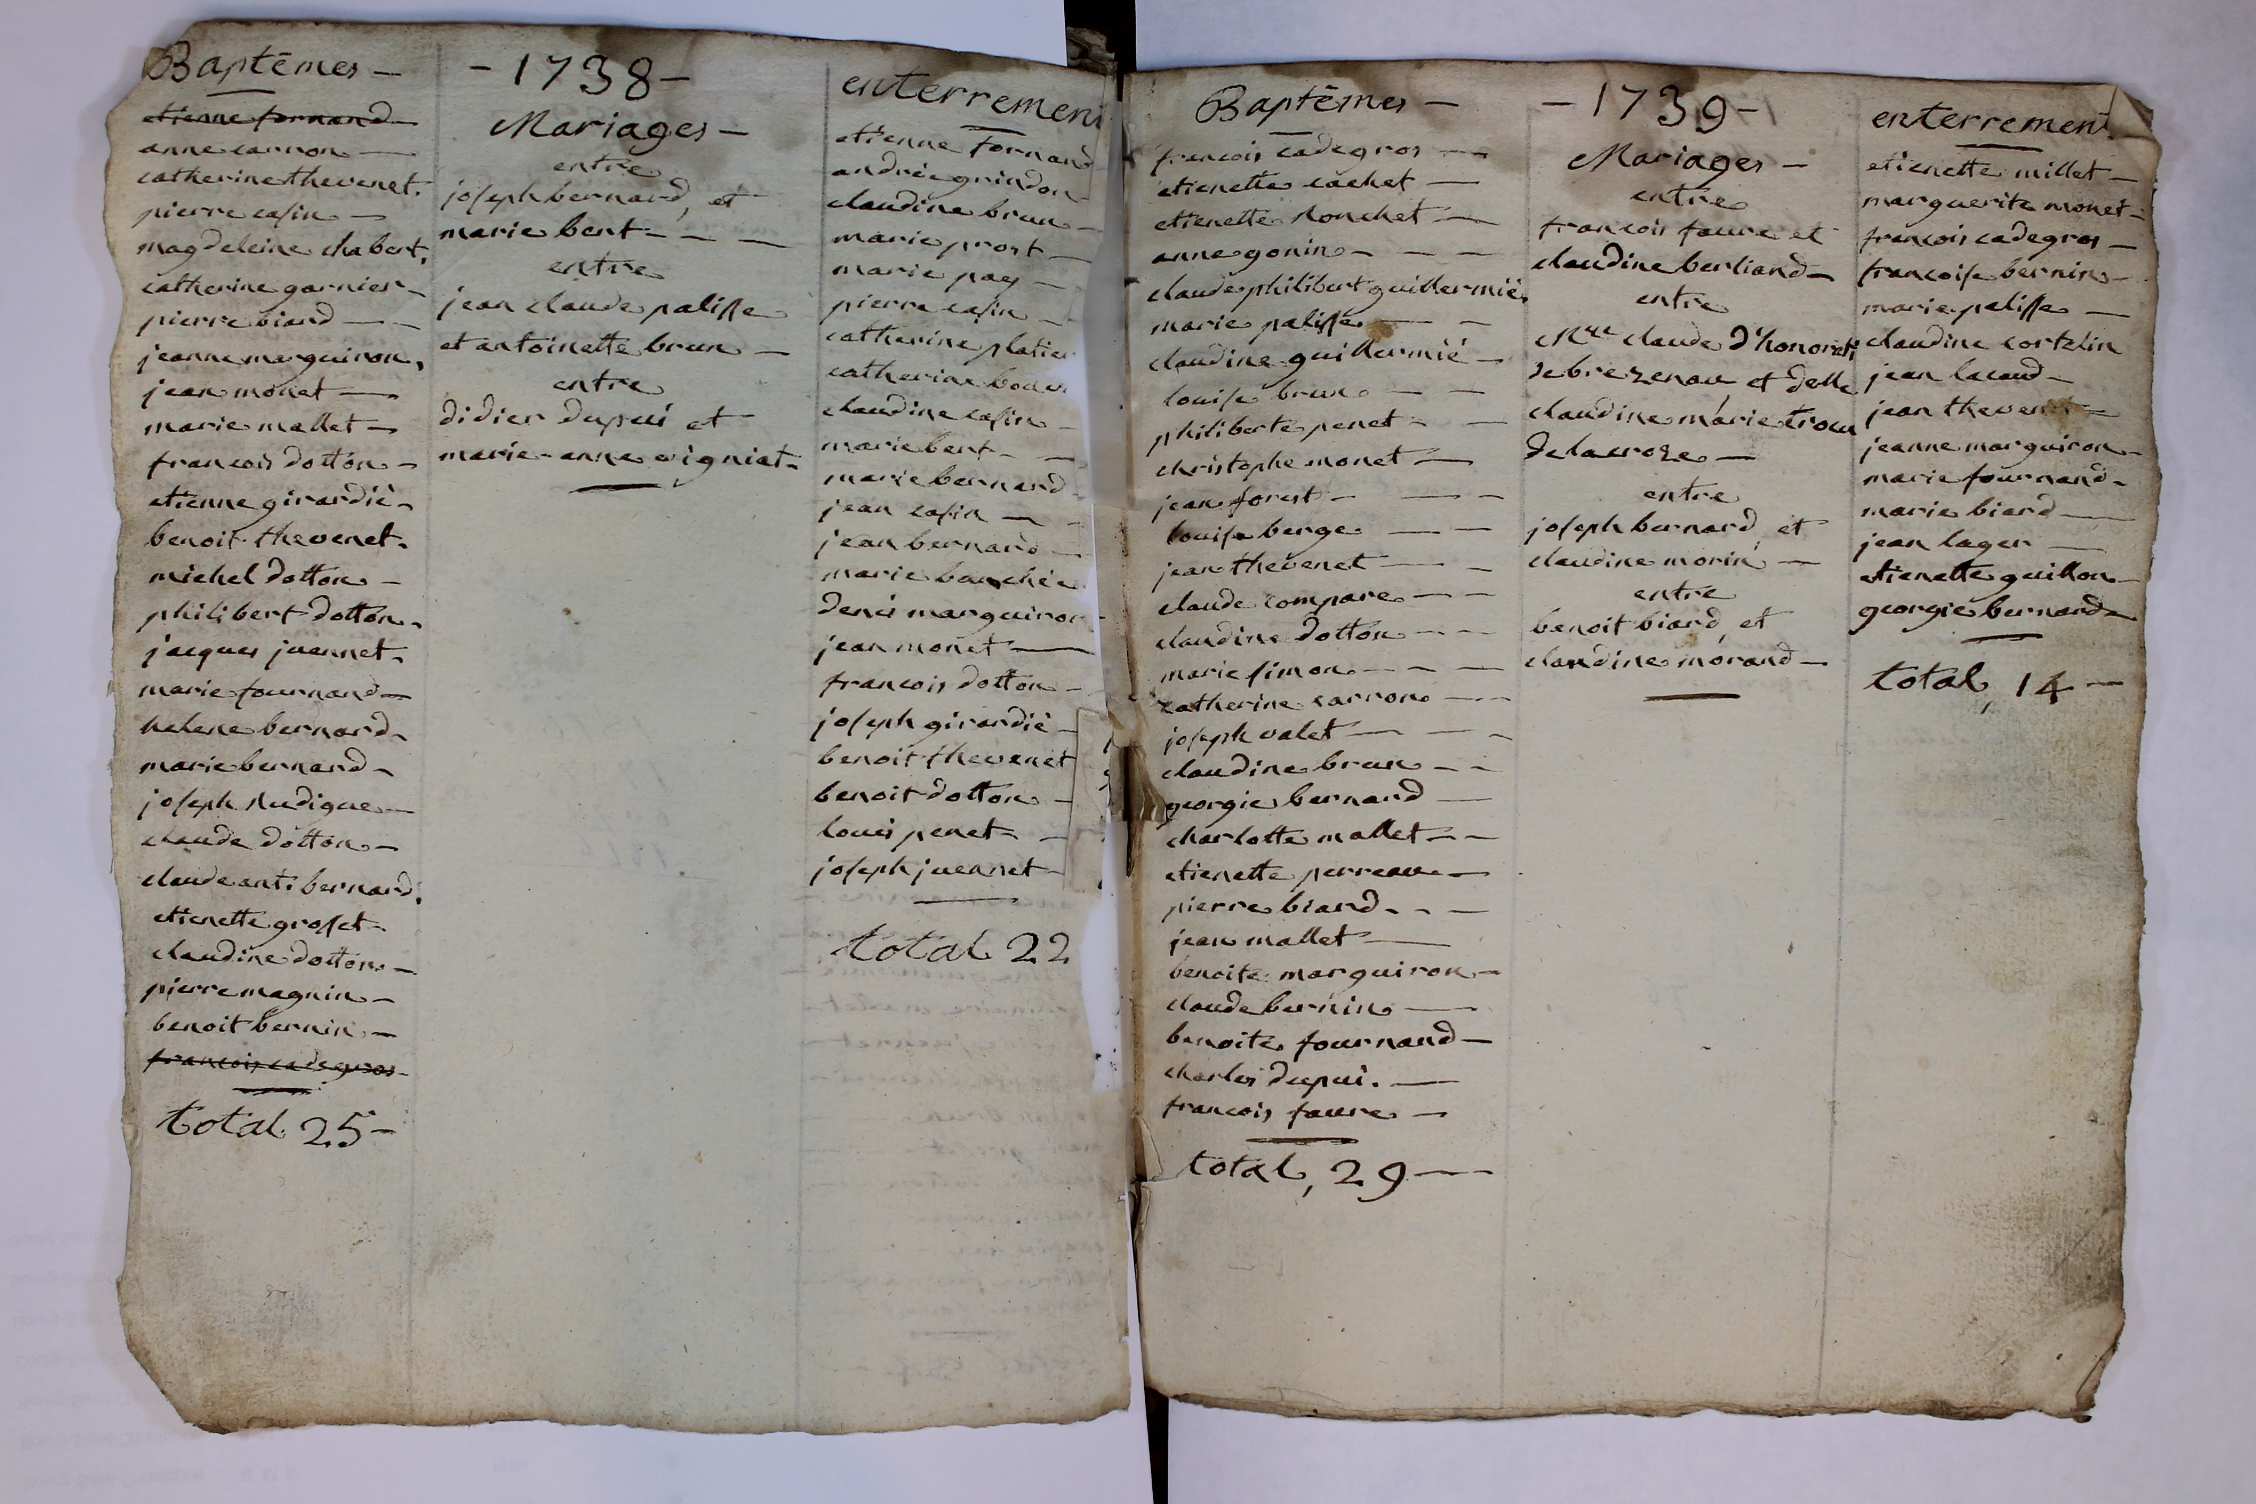 Baptêmes —
etienne fornand
anne carron —
catherine thevenet.
pierre casin —
magdeleine chabert,
catherine garnier —
pierre biard — —
jeanne marguiron,
jean monet —
marie mallet —
francois dotton —
etienne girardié —
benoit thevenet.
michel dotton —
philibert dotton —
jacques juennet.
marie fournand —
helene bernard —
marie bernard —
joseph
claude dotton —
claude ant. bernard.
etienette grosset —
claudine dotton —
pierre magnin —
benoit bernin —
francois cadegros —
total 25 —
— 1738 —
Mariages —
entre
joseph bernard, et
marie bert — — —
entre
jean claude palisse
et antoinette brun —
entre
didier dupui et
marie-anne vigniat —
enterremen
etienne fornand
andrée grindon
claudine brun —
marie prost —
marie pay —
pierre casin —
catherine platier
catherine
claudine casin —
marie bert — —
marie bernard
jean casin — —
jean bernard —
marie bouchée
denis marguiron
jean monet —
francois dotton —
joseph girardié —
benoit thevenet
benoit dotton —
louis penet — —
joseph juennet —
total 22
Baptêmes —
francois cadegros — —
etienette cachet —
etienette ronchet —
anne gonin — — —
claude philibert guillermié.
marie palisse — —
claudine guillermié —
louise brun — —
philiberte penet — —
christophe monet —
jean forest — — —
louise berge — —
jean thevenet — —
claude compare — —
claudine dotton — —
marie simon — — —
catherine carron — —
joseph valet — — —
claudine brun — —
georgie bernard —
charlotte mallet — —
etienette perreau —
pierre biard — — —
jean mallet —
benoite marguiron —
claude bernin —
benoite fournand —
charles dupui. —
francois faure —
total, 29 —
— 1739 —
Mariages —
entre
francois faure et
claudine berliand —
entre
claude d'honorati
de brezenau et delle
claudine marie
de lacroze —
entre
joseph bernard, et
claudine morin —
entre
benoit biard, et
claudine morand —
enterremen
etienette millet —
marguerite monet —
francois cadegros —
francoise bernin —
marie palisse —
claudine cortelin
jean lacand —
jean thevenet —
jeanne marguiron —
marie fournand —
marie biard —
jean lager —
etienette guillon —
georgie bernard —
total, 14 —